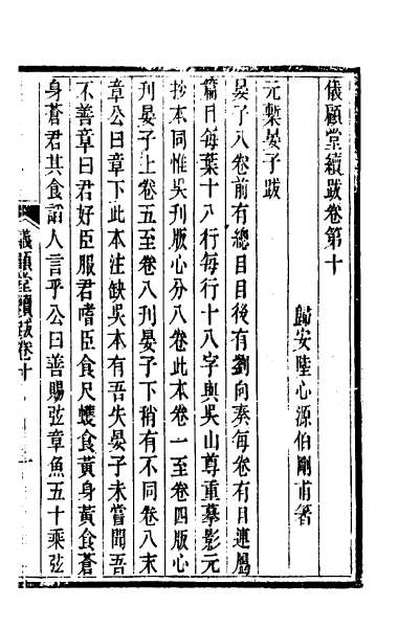 儀顧堂續跋卷第十
歸安陸心源伯剛甫著
元槧晏子跋
晏子八卷前有總目目後有劉向奏每卷有目連屬
篇目每葉十八行每行十八字與吳山尊重摹影元
抄本同惟吳刋版心分八卷此本卷一至卷四版心
刋晏子上卷五至卷八刋晏子下稍有不同卷八末
章公曰章下此本注缺吳本有吾失晏子未嘗聞吾
不善章曰君好臣服君嗜臣食尺蠖食黃身黃食蒼
身蒼君其食謟人言乎公曰善賜弦章魚五十乘弦
儀顧堂續跋卷十
一